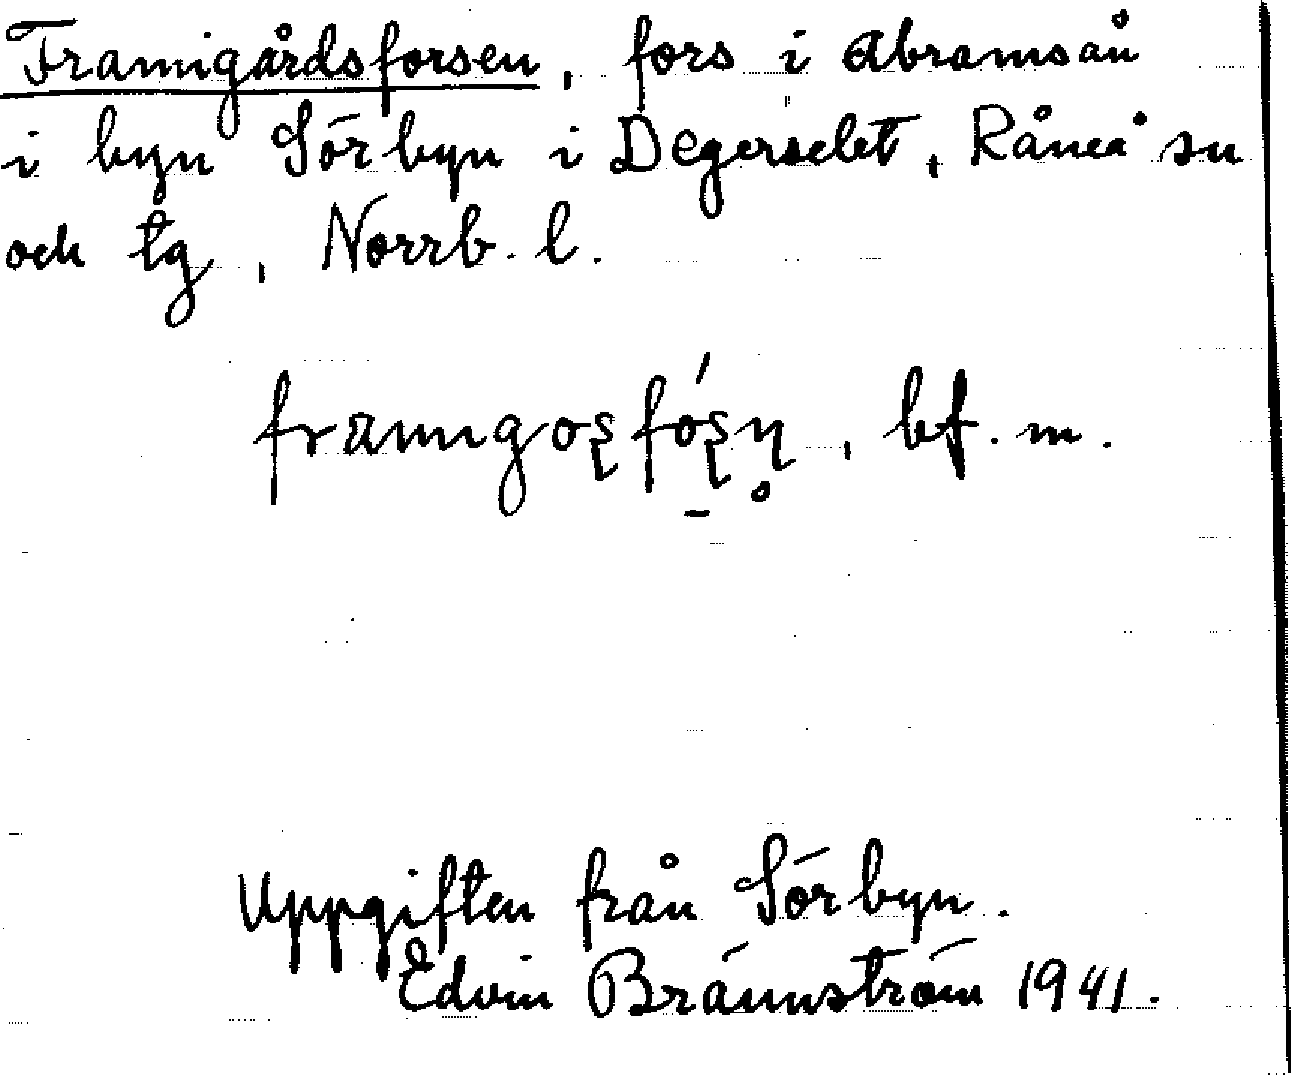 Framigårdsforsen, fors i Abramsån
i byn Sörbyn i Degerselet, Råneå sn
och tg, Norrb. l.
bf. m.
Uppgiften från Sörbyn.
Edvin Brännström 1941.